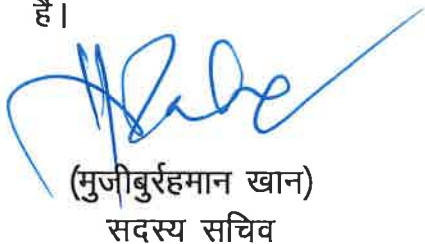 है।
(मुजीबुर्रहमान खान)
सदस्य सचिव